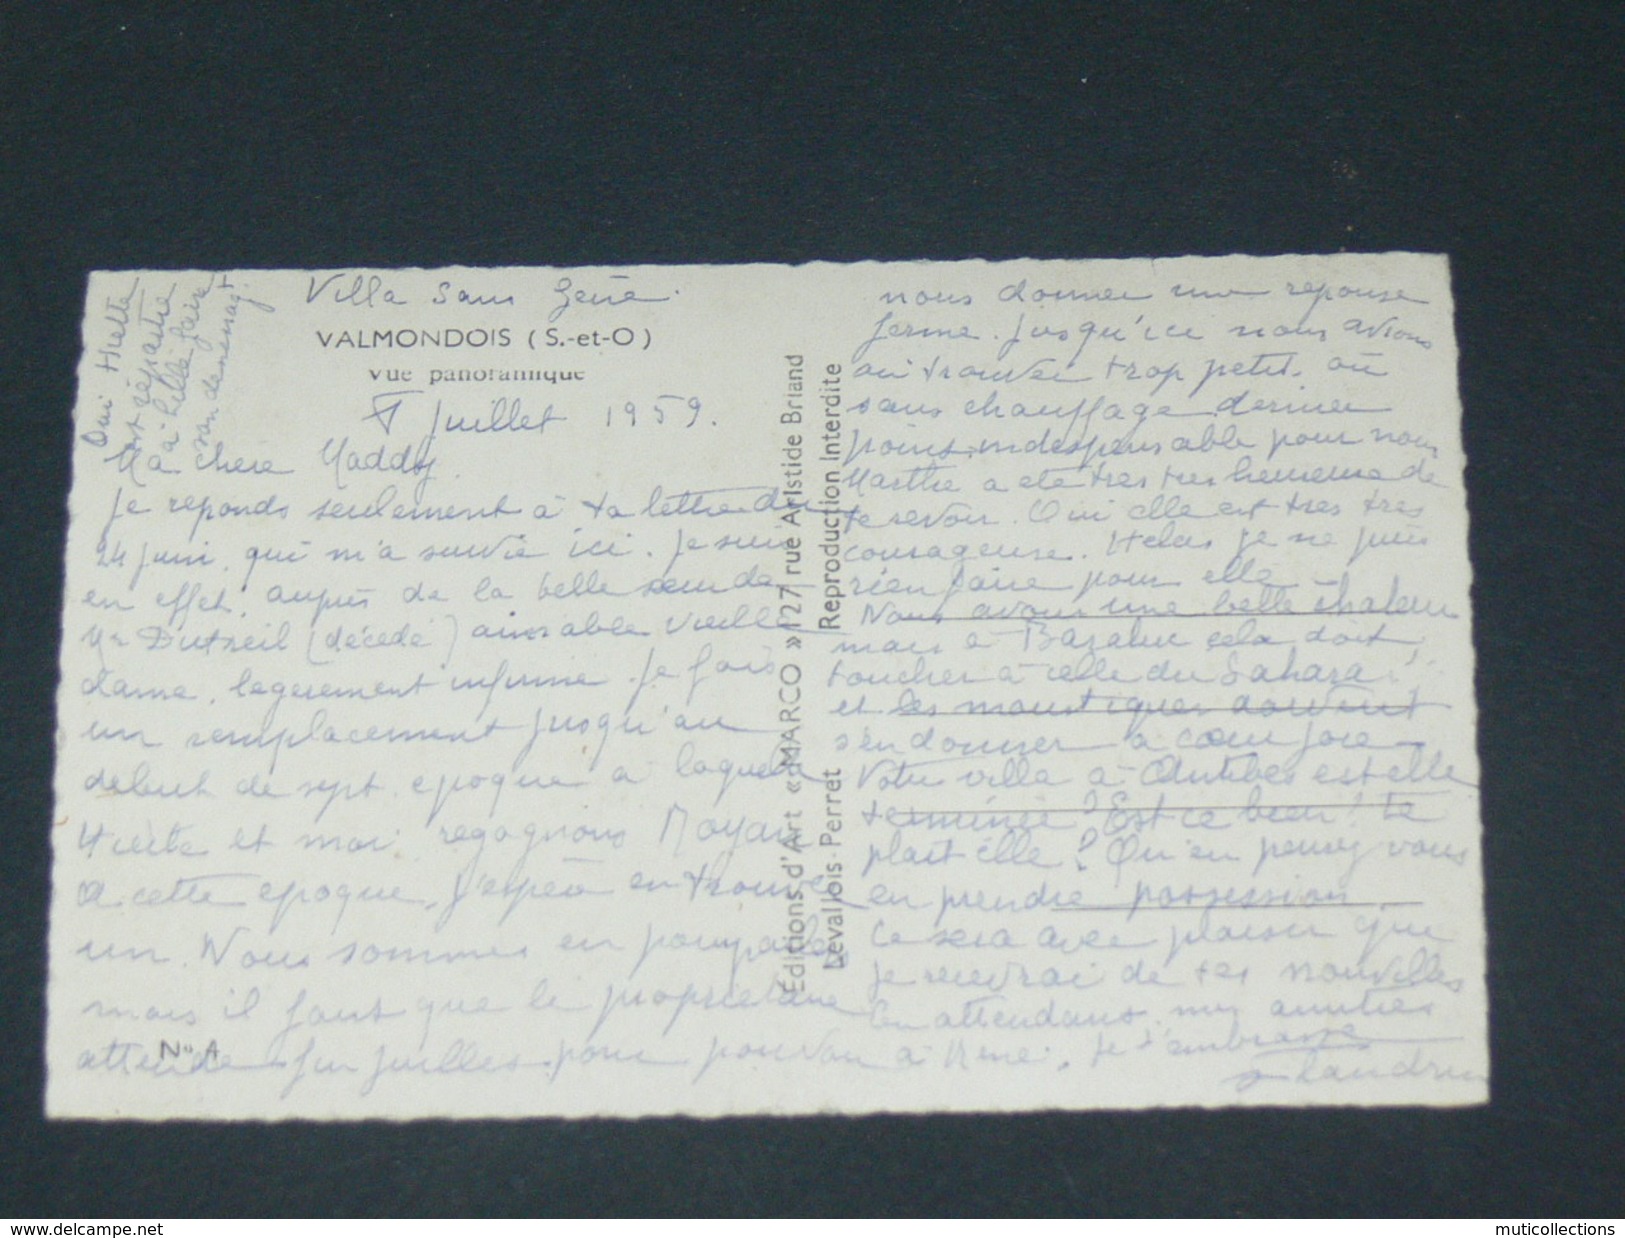 Villa Sans Gêne.
VALMONDOIS (S.-et-O)
Vue panoramique
Juillet 1959.
Ma chère Maddy
Je reponds seulement à ta lettre du
24 Juin, qui m'a suivie ici. Je suis
en effet, auprès de la belle soeur de
Mr Dutreil (décédé) aimable vieille
dame, legerement infirme. Je fais
un remplacement jusqu'au
debut de sept. epoque à laquelle
Huette et moi regagnons Royan
A cette epoque, j'espère en trouver
un. Nous sommes en pourparlers
mais il faut que le proprietaire
attende fin juillet pour pouvoir
nous donner une reponse
ferme. Jusqu'ici nous avions
ou trouvé trop petit, ou
sans chauffage dernier
point indespensable pour nous
Marthe a ete tres tres heureuse de
te revoir. Oui elle est tres tres
courageuse. Helas je ne puis
rien faire pour elle
Nous avons une belle chaleur
mais à cela doit
toucher à celle du Sahara!
et les moustiques doivent
s'en donner à coeur joie
Votre villa à Antibes est elle
terminée? Est ce bien! te
plait elle? Qu'en pensez vous
en prendre possession.
Ce sera avec plaisir que
je recevrai de tes nouvelles
En attendant, mes amitiés
à René. Je t'embrasse
Oui Huette
est repartie
à Lille faire
son demenagt.
Éditions d'Art «MARCO» 127 rue Aristide Briand
Levallois-Perret Reproduction Interdite
N° A
https://www.delcampe.net
muticollections